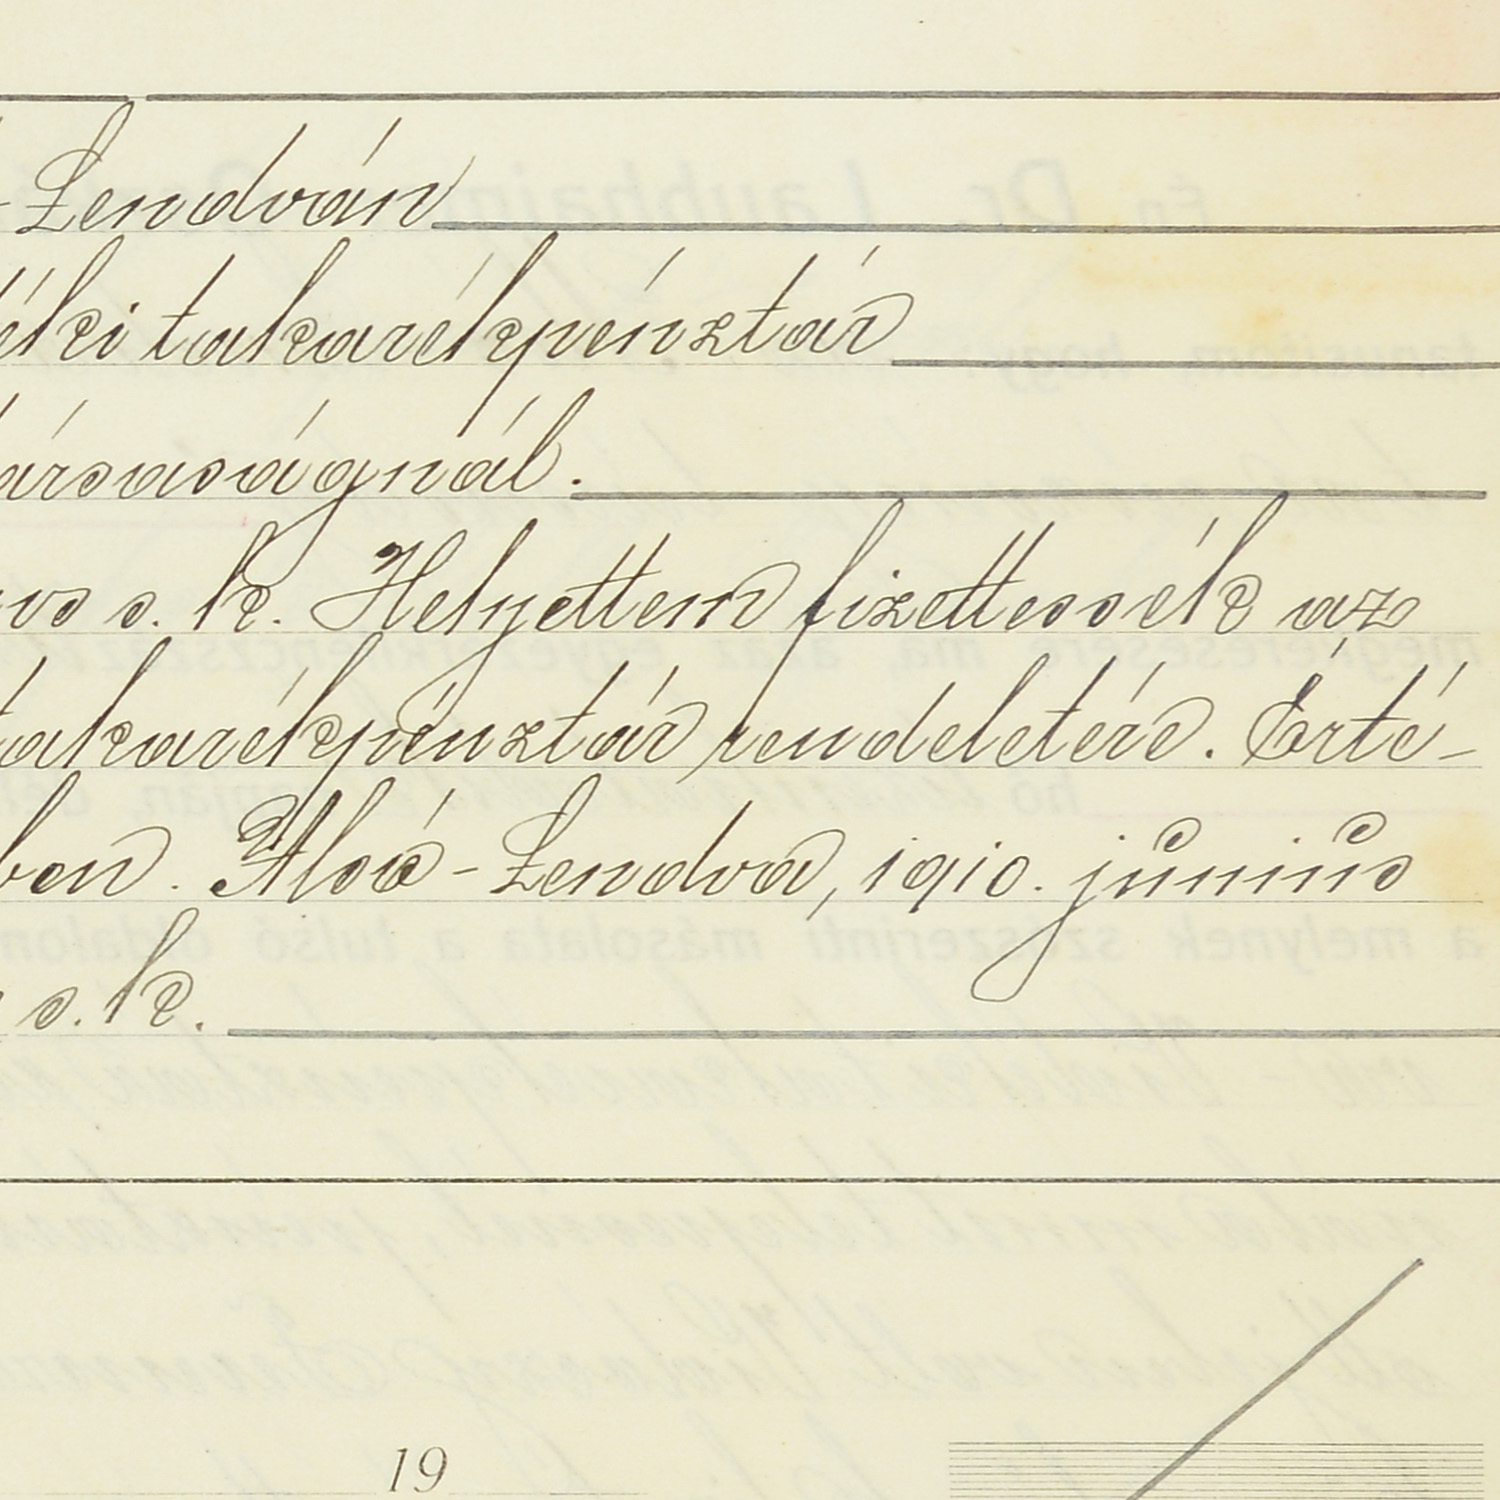 -Lendván
éki takarékpénztár
ársaságnál.
s. k. Helyettem fizettessék az
takarékpénztár rendeletére. Érté-
ben. Alsó-Lendva, 1910. június
s. k.
19